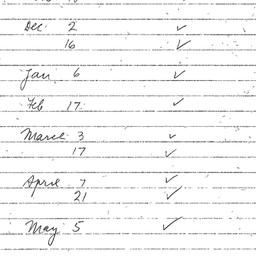 Dec 2 ✓
16 ✓
Jan 6 ✓
Feb 17 ✓
March 3 ✓
17 ✓
April 7 ✓
21 ✓
May 5 ✓